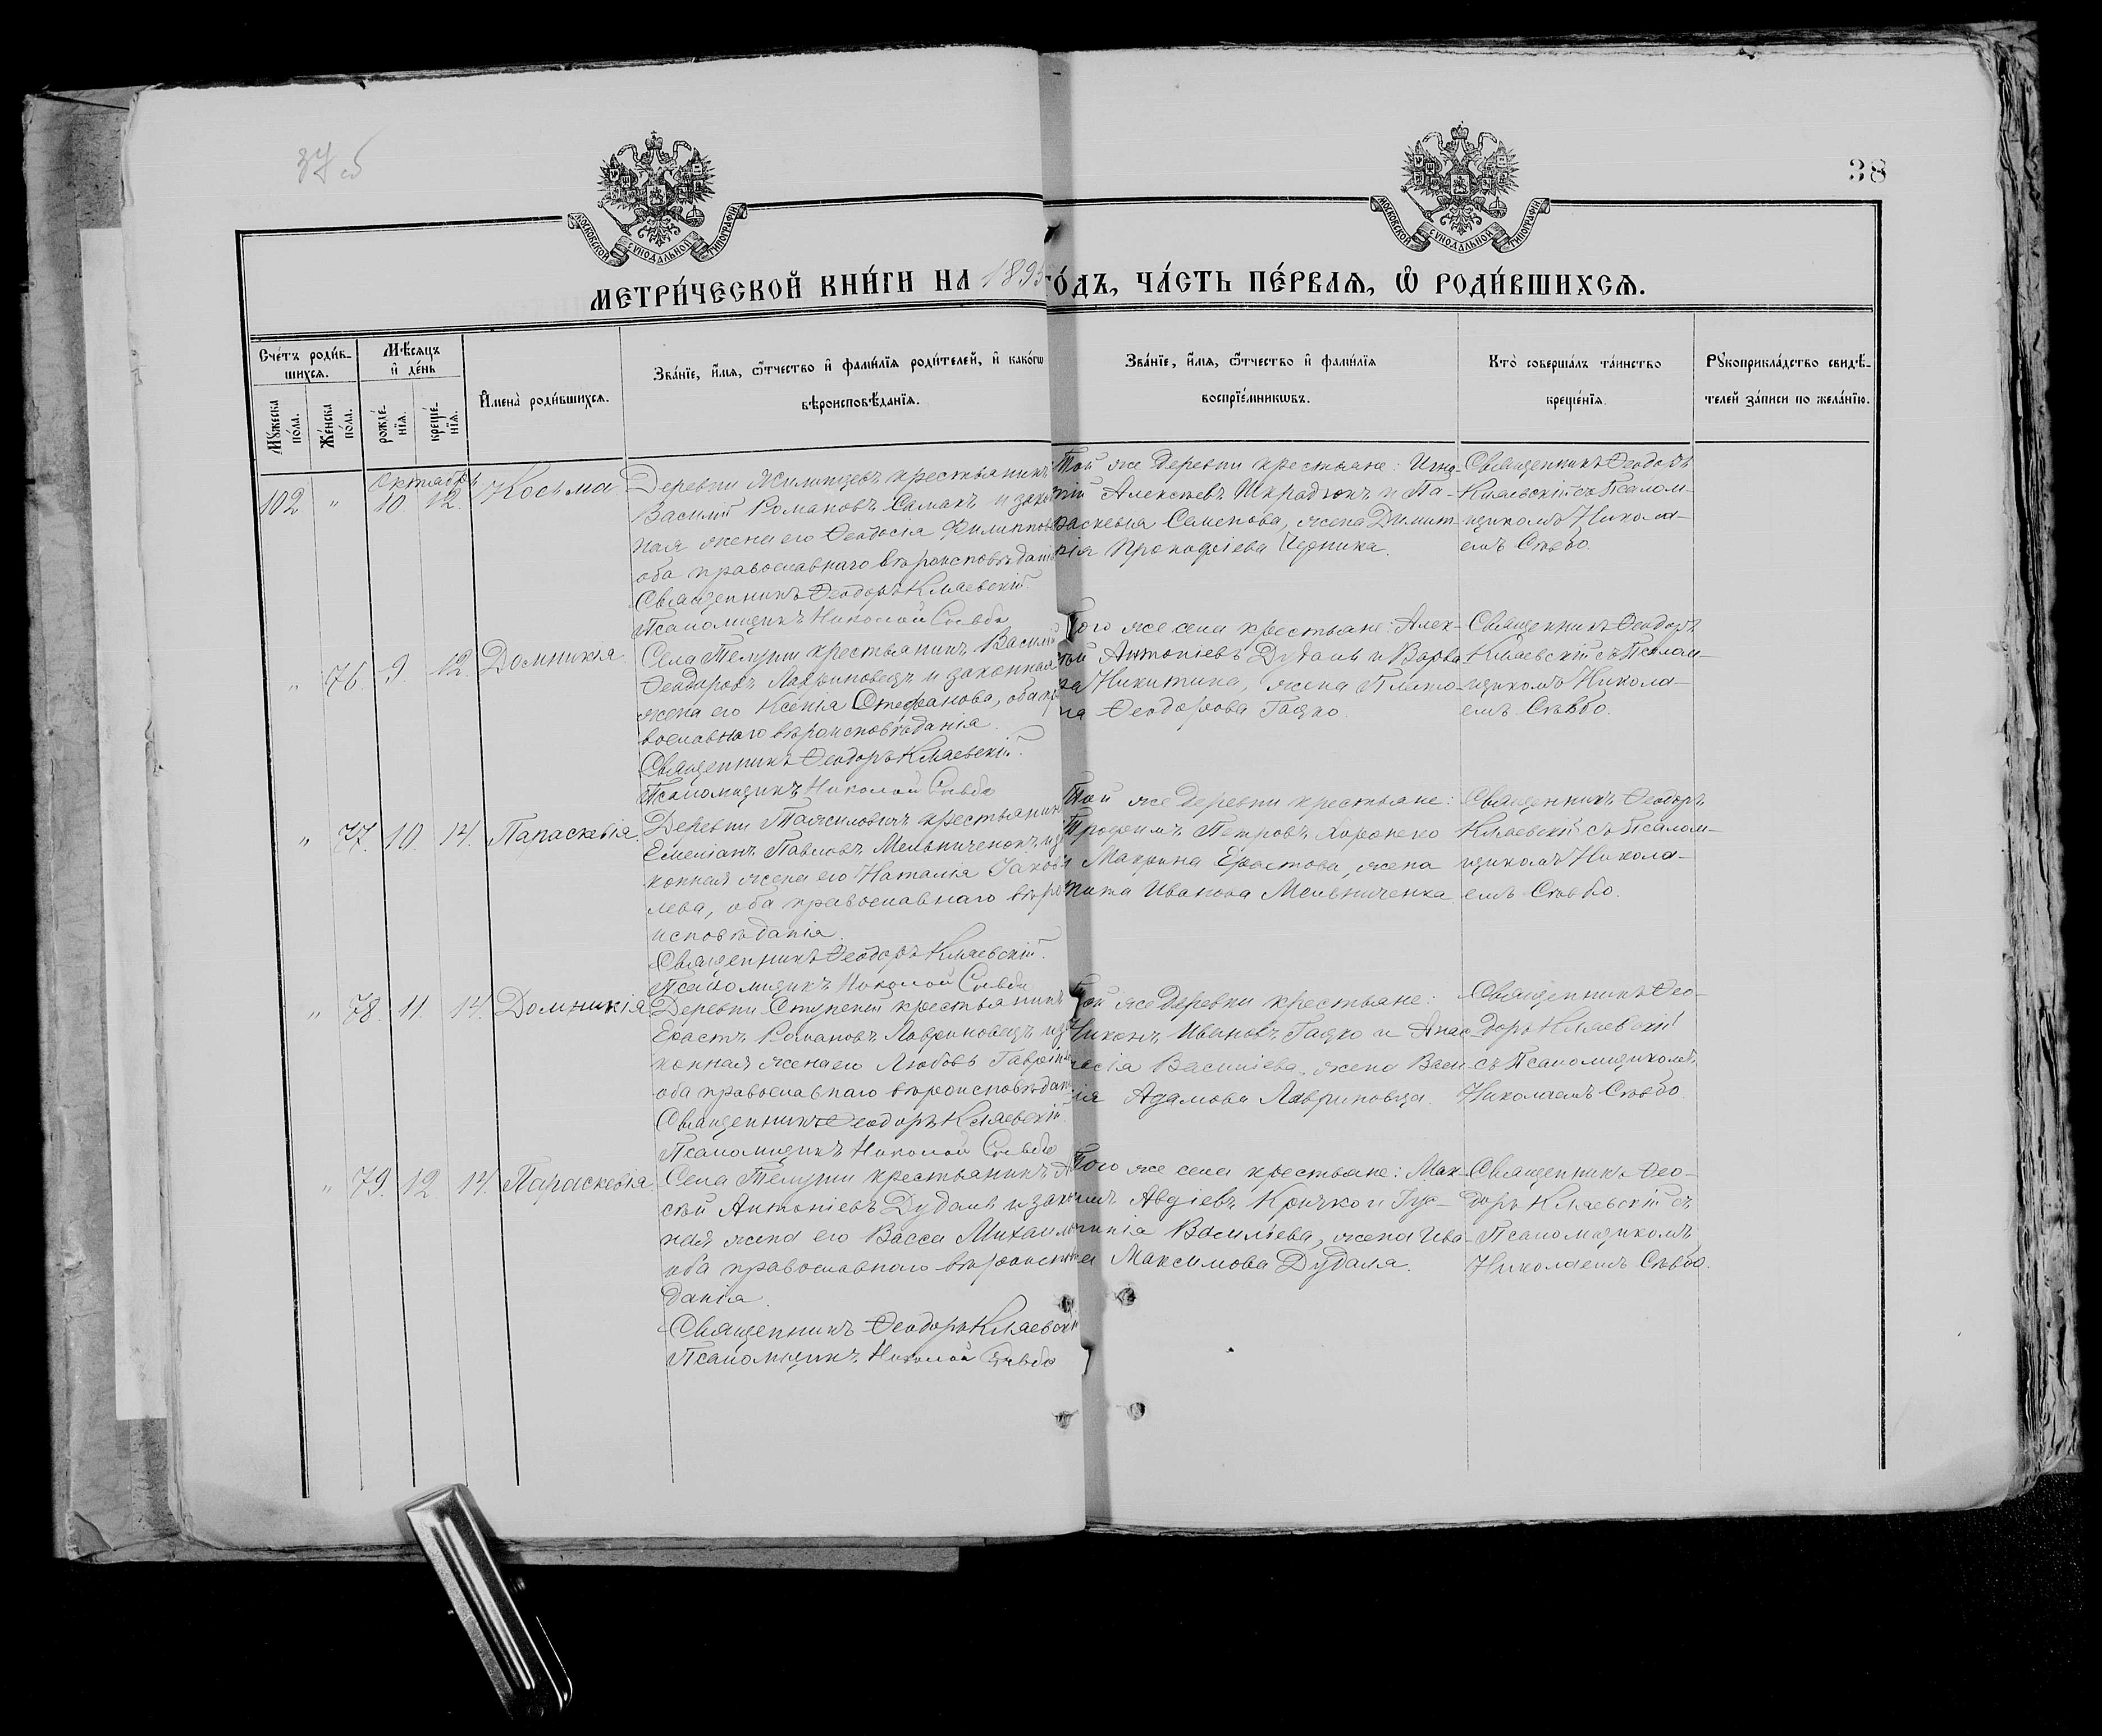 38
МОСКОВСКОЙ СУНОДАЛЬНОЙ ТИПОГРАФІИ
МОСКОВСКОЙ СУНОДАЛЬНОЙ ТИПОГРАФІИ
МЕТРИ́ЧЕСКОЙ КНИ́ГИ НА 1895 ГО́ДЪ, ЧА́СТЬ ПЕ́РВАѦ, Ѽ РОДИ́ВШИХСѦ.
Сче́тъ роди́в-
шихсѧ.
Мꙋ́жеска по́ла.
Же́нска по́ла.
Мѣ́сѧцъ и҆ де́нь
рожде́-
нїѧ.
креще́-
нїѧ.
И҆мена̀ роди́вшихсѧ.
Зва́нїе, и҆́мѧ, ѻ҆́тчество и҆ фами́лїѧ роди́телей, и҆ како́гѡ
вѣроисповѣ́данїѧ.
Зва́нїе, и҆́мѧ, ѻ҆́тчество и҆ фами́лїѧ
воспрїе́мникѡвъ.
Кто̀ соверша́лъ та́инство
креще́нїѧ.
Рꙋкоприкла́дство свидѣ́-
телей за́писи по жела́нїю.
Октябрь
102 " 10 12. Косьма
Деревни крестьянинъ
Василій Романовъ Самакъ и закон
ная жена его Ѳеодосія Филиппов
оба православнаго вѣроисповѣданія
Священникъ Ѳеодоръ Княевскій
Псаломщикъ Николай Съвбо
Той же деревни крестьяне: Игна-
тій Алексѣевъ Шкрадюкъ и Па-
раскевія Семенова, жена Димит-
рія Прокофіева Черника.
Священникъ Ѳеодоръ
Княевскій съ Псалом-
щикомъ Никола-
емъ Съвбо.
" 76. 9 12. Домникія
Села Телуши крестьянинъ Василій
Ѳеодоровъ Лавриновецъ и законная
жена его Ксенія Стефанова, оба пра
вославнаго вѣроисповѣданія.
Священникъ Ѳеодоръ Княевскій.
Псаломщикъ Николай Съвбо
Того же села крестьяне: Алек-
сѣй Антоніевъ Дудаль и Варва-
ра Никитина, жена Плато-
на Ѳеодорова Гацко.
Священникъ Ѳеодоръ
Княевскій съ Псалом-
щикомъ Никола-
емъ Съвбо.
" 77. 10. 14. Параскевія.
Деревни крестьянинъ
Емеліанъ Павловъ Мельниченокъ и за
конная жена его Наталія Іаков
лева, оба православнаго вѣро
исповѣданія.
Священникъ Ѳеодоръ Княевскій.
Псаломщикъ Николай Съвбо
Той же деревни крестьяне:
Трофимъ Петровъ Хоронеко
и Макрина Ерастова, жена
Ивана Мельниченка
Священникъ Ѳеодоръ
Княевскій съ Псалом-
щикомъ Никола-
емъ Съвбо.
" 78. 11. 14. Домникія
Деревни Ступени крестьянинъ
Ерастъ Романовъ Лавриновецъ и за
конная жена его Любовь Гавріил
оба православнаго вѣроисповѣдан
Священникъ Ѳеодоръ Княевскій.
Псаломщикъ Николай Съвбо
Той же деревни крестьяне:
Никонъ Ивановъ Гацко и Анас
тасія Василіева, жена Васи
лія Адамова Лавриновца.
Священникъ Ѳео-
доръ Княевскій
съ Псаломщикомъ
Николаемъ Съвбо
" 79. 12. 14. Параскевія.
Села Телуши крестьянинъ А
сѣй Антоніевъ Дудаль и закон
ная жена его Васса Михаил
оба православнаго вѣроиспов
данія.
Священникъ Ѳеодоръ Княевскій
Псаломщикъ Николай Съвбо
Того же села крестьяне: Мак-
симъ Авдіевъ Кричко и Гус-
тинія Васильева, жена Ива-
на Максимова Дудаля.
Священникъ Ѳео-
доръ Княевскій съ
Псаломщикомъ
Николаемъ Съвбо.